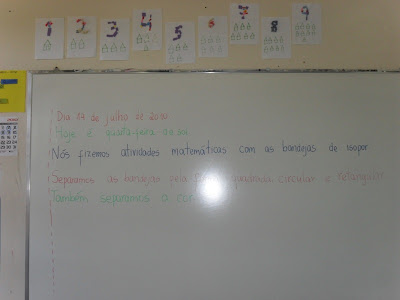 1 2 3 4 5 6 7 8 9
Dia 14 de julho de 2010
Hoje é quarta-feira de sol
Nós fizemos atividades matemáticas com as bandejas de isopor
Separamos as bandejas pela quadrada, circular e retangular
Também separamos a cor